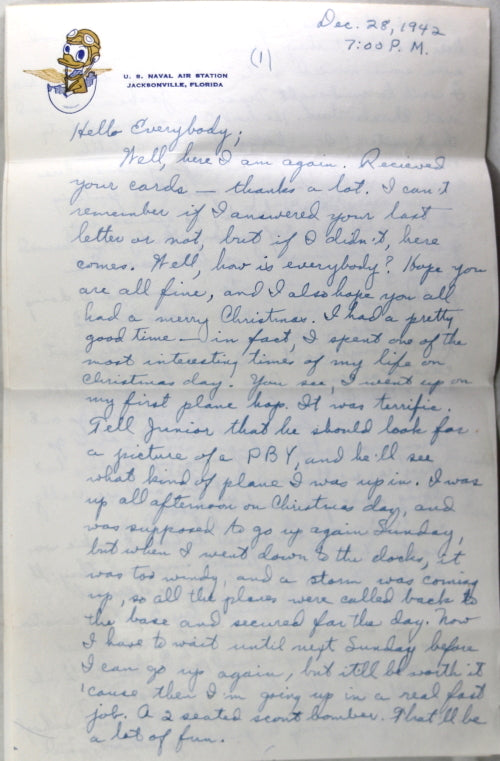 Dec. 28, 1942
7:00 P.M.
(1)
U. S. NAVAL AIR STATION
JACKSONVILLE, FLORIDA
Hello Everybody;
Well, here I am again. Recieved
your cards — thanks a lot. I can't
remember if I answered your last
letter or not, but if I didn't, here
comes. Well, how is everybody? Hope you
are all fine, and I also hope you all
had a merry Christmas. I had a pretty
good time — in fact, I spent one of the
most interesting times of my life on
Christmas day. You see, I went up on
my first plane hop. It was terrific.
Tell Junior that he should look for
a picture of a PBY, and he'll see
what kind of plane I was up in. I was
up all afternoon on Christmas day, and
was supposed to go up again Sunday,
but when I went down to the docks, it
was too windy, and a storm was coming
up, so all the planes were called back to
the base and secured for the day. Now
I have to wait until next Sunday before
I can go up again, but it'll be worth it
'cause then I'm going up in a real fast
job. A 2 seated scout bomber. That'll be
a lot of fun.